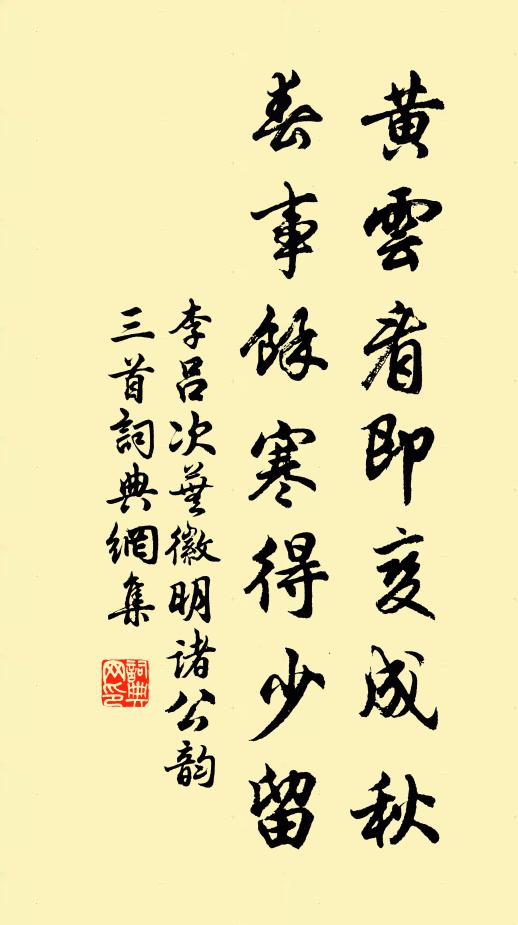 黄雲看即变成秋
春事餘寒得少留
李吕次葉徽明诸公韵
三首詞典網集
詞典网印